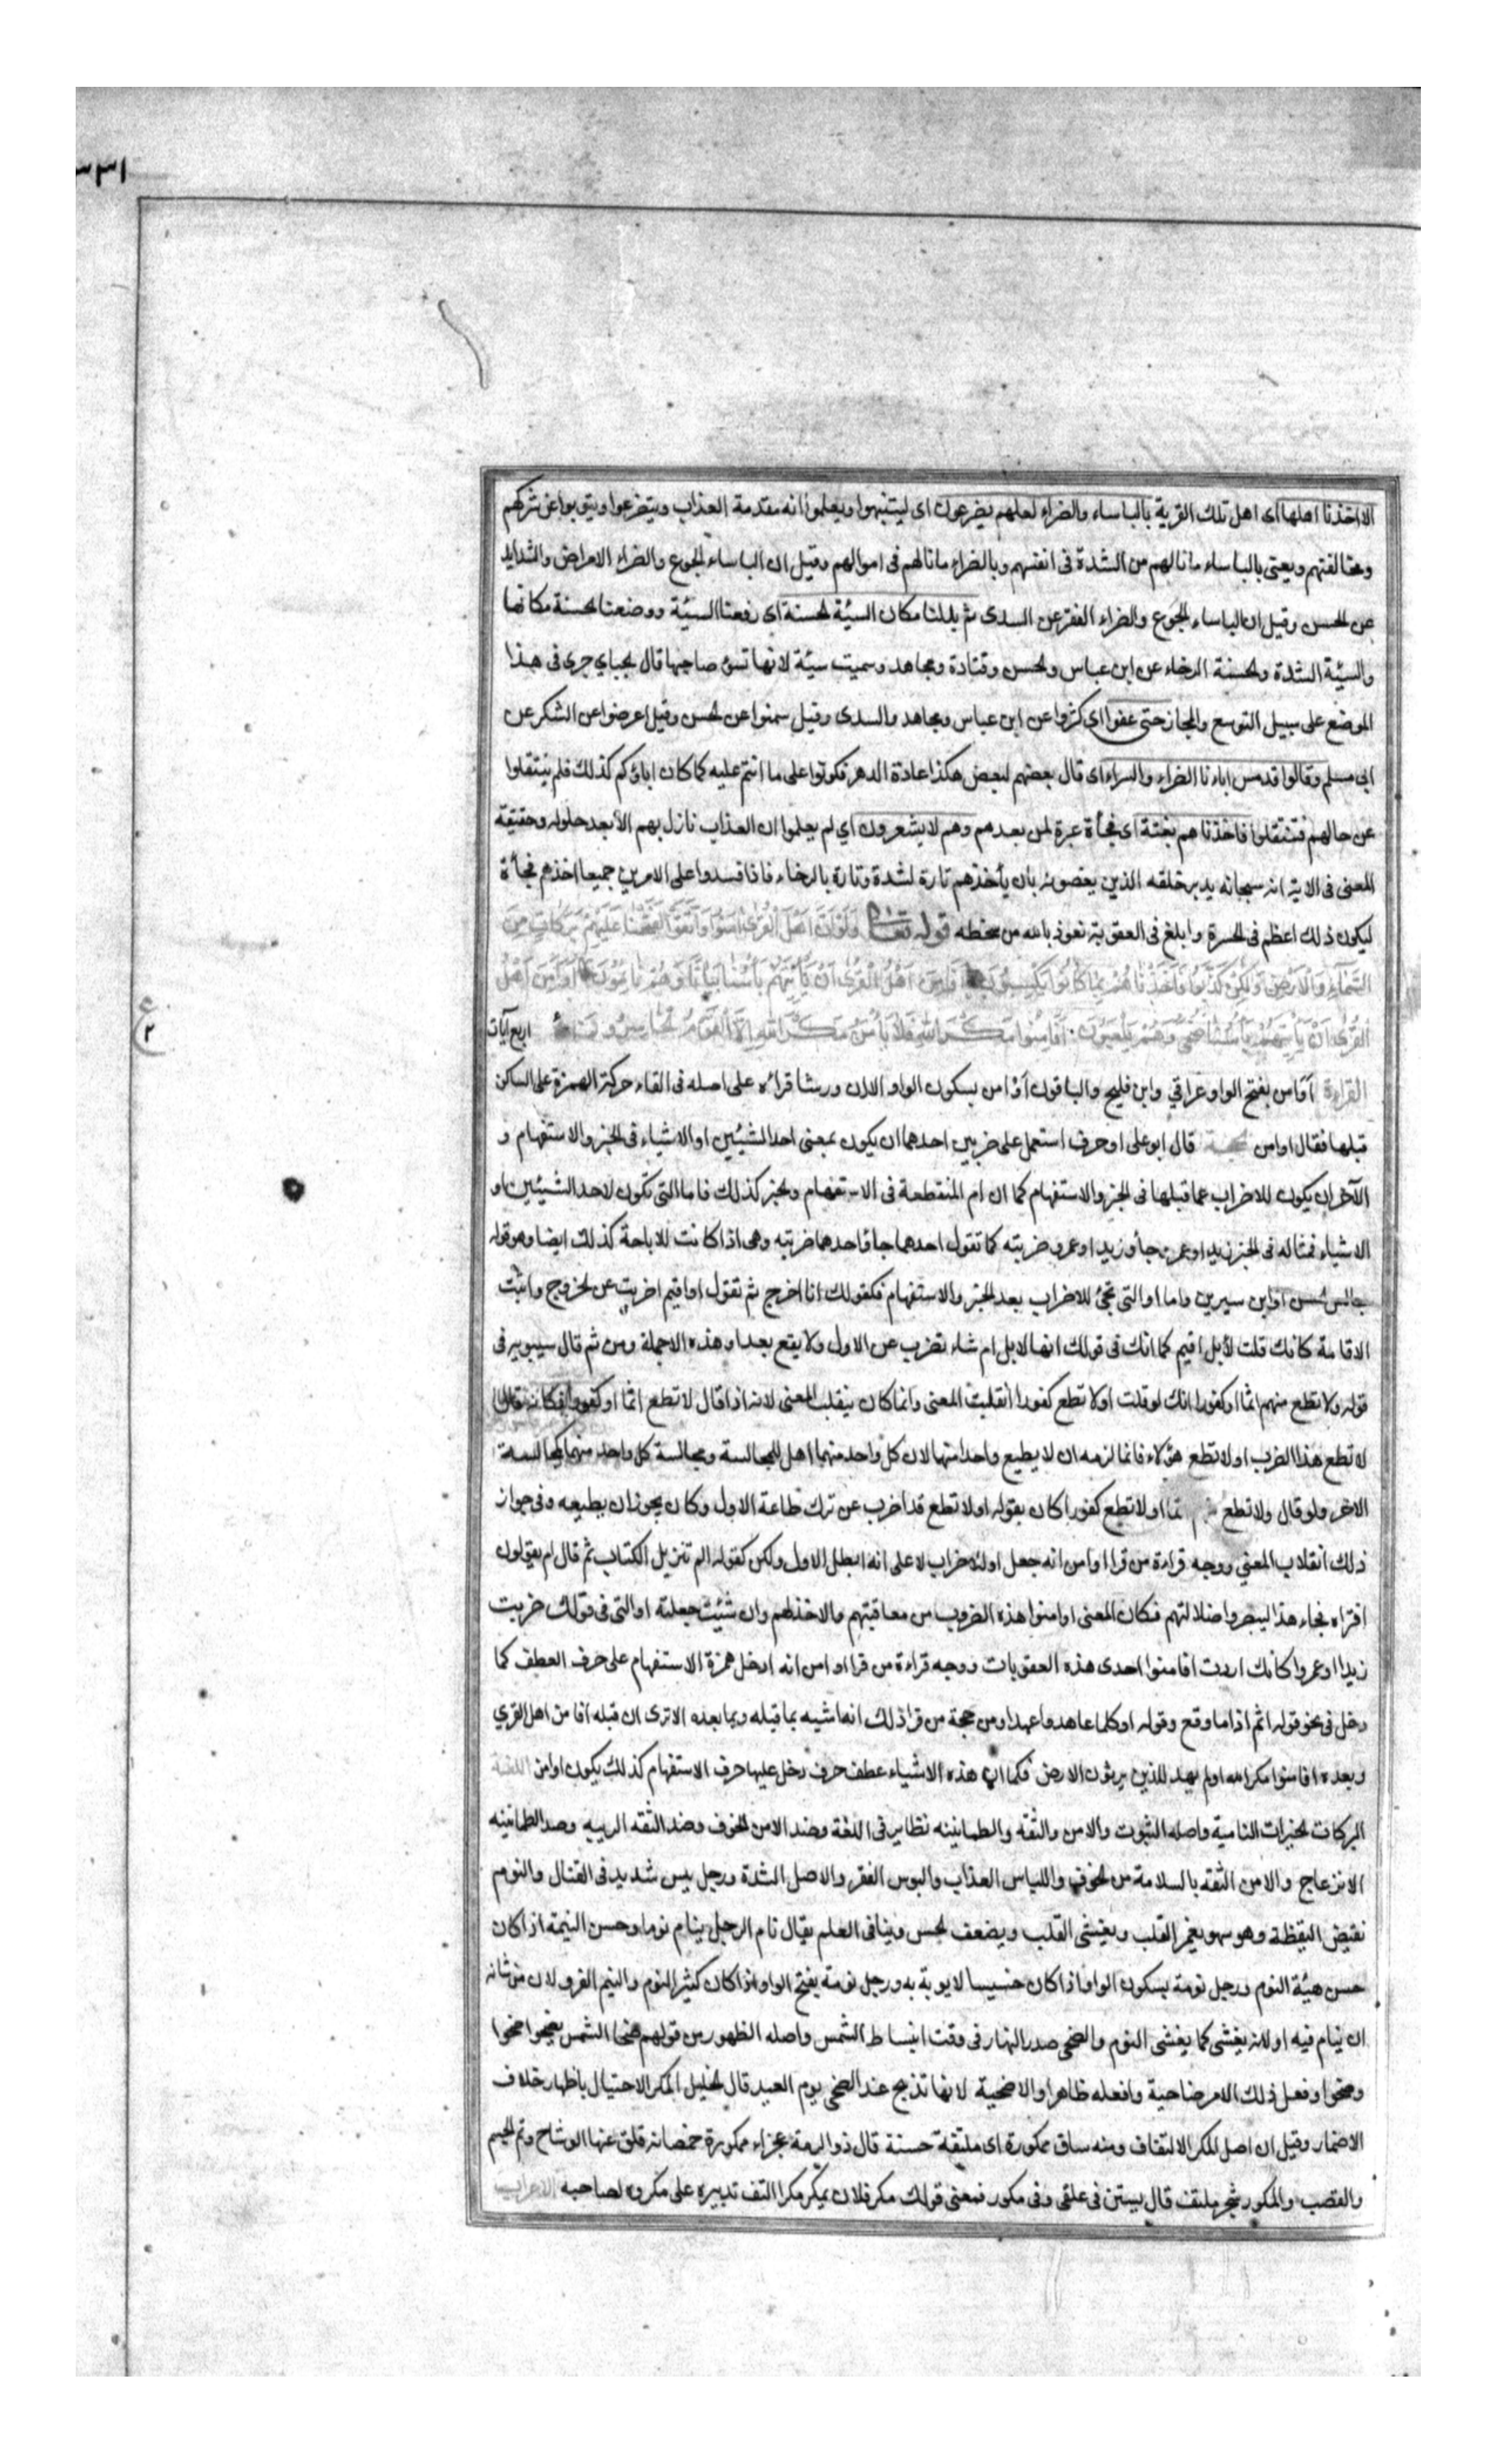 ٣٣١
الا اخذنا اهلها اى اهل تلك القرية بالباساء والضراء لعلهم يضرعون اى ليتنبهوا ويعلموا انه مقدمة العذاب ويتضرعوا ويتوبوا عن شركهم
ومخالفتهم ويعنى بالباساء ما نالهم من الشدة فى انفسهم وبالضراء ما نالهم فى اموالهم وقيل ان الباساء الجوع والضراء الامراض والشدايد
عن الحسن وقيل ان الباساء الجوع والضراء الفقر عن السدى ثم بدلنا مكان السيئة الحسنة اى رفعنا السيئة ووضعنا الحسنة مكانها
والسيئة الشدة والحسنة الرخاء عن ابن عباس والحسن وقتادة ومجاهد وسميت سيئة لانها تسؤ صاحبها قال الجبايي جرى فى هذا
الموضع على سبيل التوسع والمجاز حتى عفوا اى كثروا عن ابن عباس ومجاهد والسدى وقيل سمنوا عن الحسن وقيل اعرضوا عن الشكر عن
ابى مسلم وقالوا قد مس اباءنا الضراء والسراء اى قال بعضهم لبعض هكذا عادة الدهر فكونوا على ما انتم عليه كما كان اباؤكم كذلك فلم ينتقلوا
عن حالهم فتنتقلوا فاخذناهم بغتة اى فجأة عبرة لمن بعدهم وهم لا يشعرون اي لم يعلموا ان العذاب نازل بهم الا بعد حلوله وحقيقة
المعنى فى الاية انه سبحانه يدبر خلقه الذين يعصونه بان يأخذهم تارة لشدة وتارة بالرخاء فاذا فسدوا على الامرين جميعا اخذهم فجأة
ليكون ذلك اعظم فى الحسرة وابلغ فى العقوبة نعوذ بالله من سخطه قوله تعالى وَلَوْ اَنَّ اَهْلَ الْقُرٰى اٰمَنُوا وَاتَّقَوْا لَفَتَحْنَا عَلَيْهِمْ بَرَكَاتٍ مِنَ
السَّمَآءِ وَالْاَرْضِ وَلٰكِنْ كَذَّبُوا فَاَخَذْنَاهُمْ بِمَا كَانُوا يَكْسِبُونَ اَفَاَمِنَ اَهْلُ الْقُرٰى اَنْ يَأْتِيَهُمْ بَأْسُنَا بَيَاتًا وَهُمْ نَائِمُونَ اَوَاَمِنَ اَهْلُ
الْقُرٰى اَنْ يَأْتِيَهُمْ بَأْسُنَا ضُحًى وَهُمْ يَلْعَبُونَ اَفَاَمِنُوا مَكْرَ اللهِ فَلَا يَأْمَنُ مَكْرَ اللهِ اِلَّا الْقَوْمُ الْخَاسِرُونَ اربع آيات
القراءة أوَامن بفتح الواو عراقي وابن فليح والباقون أوْ امن بسكون الواو الا ان ورشا قراه على اصله فى القاء حركة الهمزة على الساكن
قبلها فقال اوامن الحجة قال ابو على او حرف استعمل على ضربين احدهما ان يكون بمعنى احد الشيئين او الاشياء فى الخبر والاستفهام و
الآخر ان يكون للاضراب عما قبلها فى الخبر والاستفهام كما ان ام المنقطعة فى الاستفهام والخبر كذلك فاما التى تكون لاحد الشيئين او
الاشياء فمثاله فى الخبر زيد او عمرو جاء وزيدا او عمرو ضربته كما تقول احدهما جا واحدهما ضربته وهى اذا كانت للاباحة كذلك ايضا وهو قوله
جالس الحسن او ابن سيرين واما او التى تجئ للاضراب بعد الخبر والاستفهام فكقولك انا اخرج ثم تقول او اقيم اضربت عن الخروج واثبت
الاقامة كانك قلت لا بل اقيم كما انك فى قولك انها لابل ام شاء تضرب عن الاول ولا يقع بعد او هذه الا جملة ومن ثم قال سيبويه فى
قوله ولا تطع منهم اثما او كفورا انك لو قلت او لا تطع كفورا انقلبت المعنى وانما كان ينقلب المعنى لانه اذا قال لا تطع اثما او كفورا فكانه قال
لا تطع هذا الضرب او لا تطع هؤلاء فانما لزمه ان لا يطيع واحدا منها لان كل واحد منهما اهل للمجالسة ومجالسة كل واحد منهما كمجالسة
الاخر ولو قال ولا تطع منهم اثما او لا تطع كفورا كان بقوله او لا تطع قد اضرب عن ترك طاعة الاول وكان يجوز ان يطيعه وفى جواز
ذلك انقلاب المعنى ووجه قراءة من قرا اوامن انه جعل او للاضراب لا على انه ابطل الاول ولكن كقوله الم تنزيل الكتاب ثم قال ام يقولون
افتراه فجاء هذا ليبصروا ضلالتهم فكان المعنى اوامنوا هذه الضروب من معاقبتهم والاخذ لهم وان شئت جعلته او التى فى قولك ضربت
زيدا او عمروا كانك اردت افامنوا احدى هذه العقوبات ووجه قراءة من قرا اوامن انه ادخل همزة الاستفهام على حرف العطف كما
دخل فى نحو قوله اثم اذا ما وقع وقوله اوكلما عاهدوا عهدا ومن حجة من قرا ذلك انه اشبه بما قبله وبما بعده الا ترى ان قبله افامن اهل القرى
وبعده افامنوا مكر الله اولم يهد للذين يرثون الارض فكما ان هذه الاشياء عطف حرف دخل عليها حرف الاستفهام كذلك يكون اوامن اللغة
البركات الخيرات النامية واصله الثبوت والامن والثقه والطمانينه نظاير فى اللغة وضد الامن الخوف وضد الثقه الريبه وضد الطمانينه
الانزعاج والامن الثقه بالسلامة من الخوف والباس العذاب والبوس الفقر والاصل الشدة ورجل بيس شديد فى القتال والنوم
نقيض اليقظة وهو سهو يغمر القلب ويغشى القلب ويضعف الحس وينافى العلم يقال نام الرجل ينام نوما وحسن النيمة اذا كان
حسن هيئة النوم ورجل نومة بسكون الواو اذا كان خسيسا لا يوبه به ورجل نومة بفتح الواو اذا كان كثير النوم والنيم الفرو لان من شانه
ان ينام فيه او لانه يغشى كما يغشى النوم والضحى صدر النهار فى وقت انبساط الشمس واصله الظهور من قولهم ضحا الشمس يضحوا ضحوا
وضحوا وفعل ذلك الامر ضاحية وافعله ظاهرا والاضحية لانها تذبح عند الضحى يوم العيد قال الخليل المكر الاحتيال باظهار خلاف
الاضمار وقيل ان اصل المكر الالتفاف ومنه ساق ممكورة اى ملتفة حسنة قال ذو الرمة عجزاء ممكورة خمصانة قلق عنها الوشاح وتم الجسم
والقصب والمكور شجر ملتف قال يستن فى علقى وفى مكور فمعنى قولك مكر فلان يمكر مكرا التف تدبيره على مكروه لصاحبه الاعراب
ع
٢